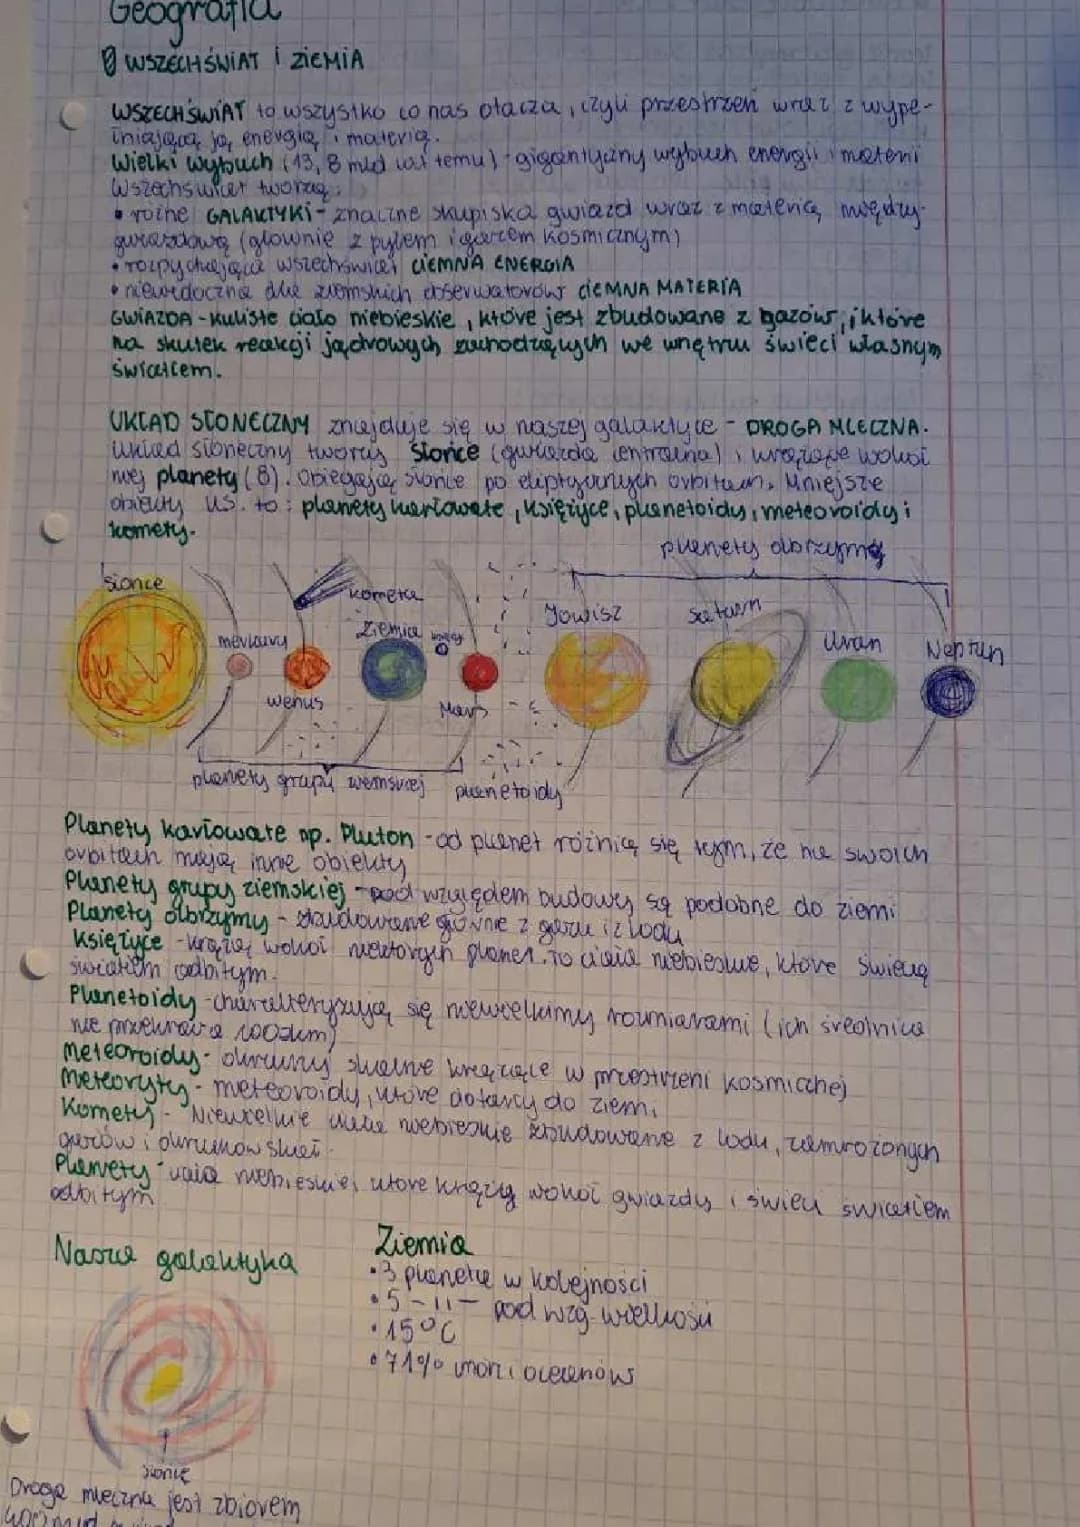 Geografia
WSZECHŚWIAT i ZIEMIA
WSZECHŚWIAT to wszystko co nas otacza, czyli przestrzeń wraz z wype-
łniającą ją energią i materią.
Wielki wybuch (13,8 mld lat temu) - gigantyczny wybuch energii i materii
Wszechświat tworzą:
• różne GALAKTYKI - znaczne skupiska gwiazd wraz z materią między-
gwiazdową (głównie z pyłem i gazem kosmicznym)
• rozpychająca wszechświat CIEMNA ENERGIA
• niewidoczna dla ziemskich obserwatorów CIEMNA MATERIA
GWIAZDA - kuliste ciało niebieskie, które jest zbudowane z gazów, i które
na skutek reakcji jądrowych zachodzących we wnętrzu świeci własnym
światłem.
UKŁAD SŁONECZNY znajduje się w naszej galaktyce - DROGA MLECZNA.
Układ słoneczny tworzą Słońce (gwiazda centralna) i krążące wokół
niej planety (8). Obiegają słońce po eliptycznych orbitach. Mniejsze
obiekty US. to: planety karłowate, księżyce, planetoidy, meteoroidy i
komety.
planety olbrzymy
słońce
kometa
merkury
Ziemia
księżyc
Jowisz
Saturn
Uran
Neptun
wenus
Mars
planety grupy ziemskiej
planetoidy
Planety karłowate np. Pluton - od planet różnią się tym, że na swoich
orbitach mają inne obiekty
Planety grupy ziemskiej - pod względem budowy są podobne do ziemi
Planety olbrzymy - zbudowane głównie z gazu i z lodu
Księżyce - krążą wokół niektórych planet. To ciała niebieskie, które świecą
światłem odbitym.
Planetoidy - charakteryzują się niewielkimi rozmiarami (ich średnica
nie przekracza 1000km)
Meteoroidy - okruchy skalne krążące w przestrzeni kosmicznej
Meteoryty - meteoroidy, które dotarły do ziemi
Komety - Niewielkie ciała niebieskie zbudowane z lodu, zamrożonych
gazów i okruchów skał.
Planety - ciała niebieskie, które krążą wokół gwiazdy i świecą światłem
odbitym
Nasza galaktyka
Ziemia
• 3 planeta w kolejności
• 5 -11- pod wzg. wielkości
• 15°C
• 71% mórz i oceanów
słońce
Droga mleczna jest zbiorem
400 mld